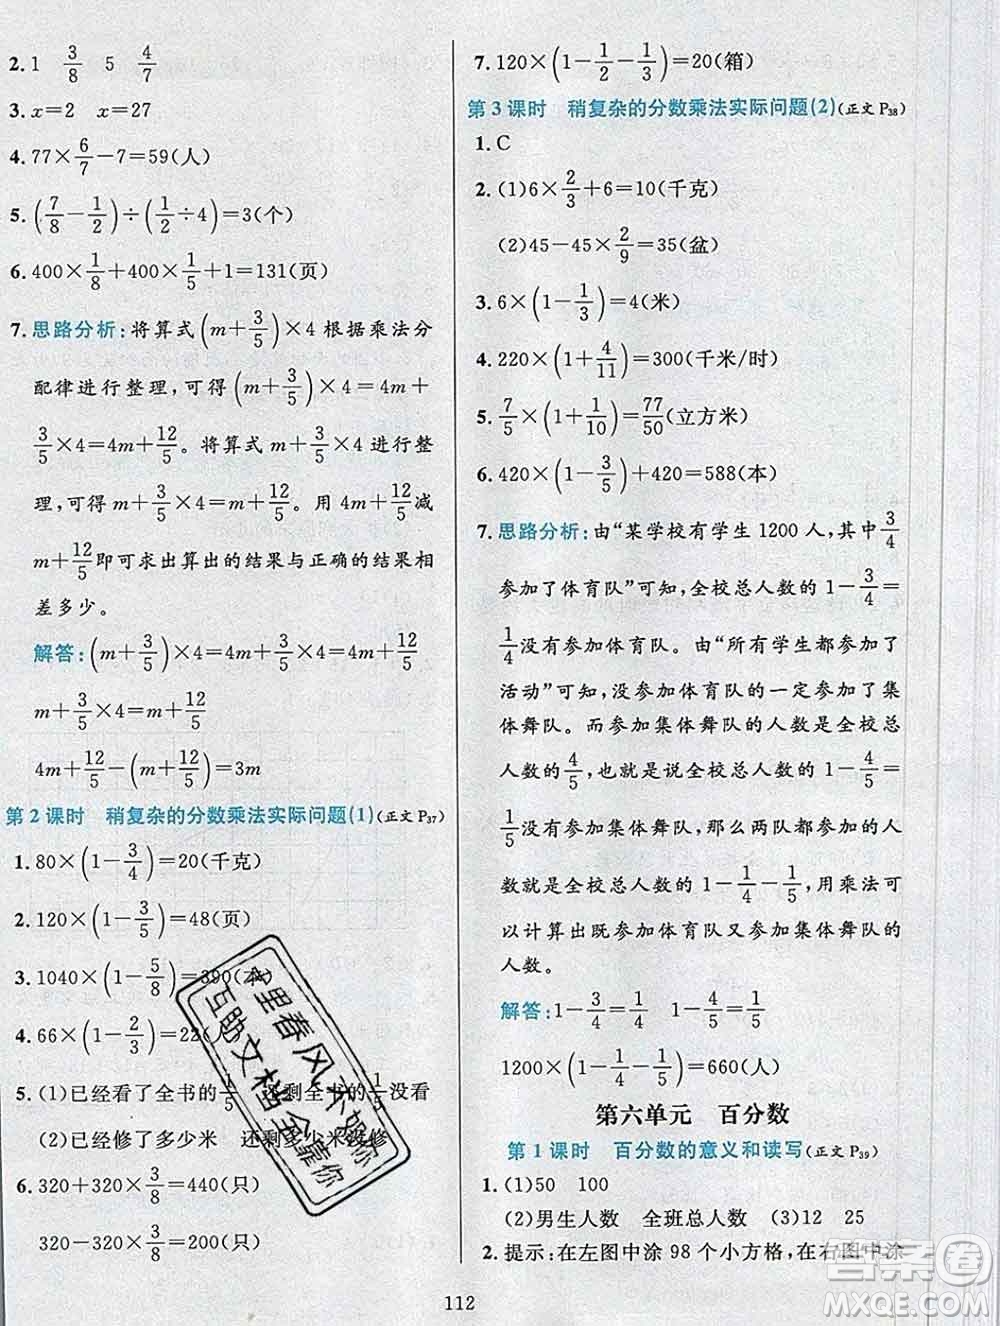 2. 1 3/8 5 4/7
3. x=2 x=27
4. 77×6/7-7=59(人)
5. (7/8-1/2)÷(1/2÷4)=3(个)
6. 400×1/8+400×1/5+1=131(页)
7. 思路分析:将算式(m+3/5)×4 根据乘法分
配律进行整理,可得(m+3/5)×4=4m+
3/5×4=4m+12/5。将算式 m+3/5×4 进行整
理,可得 m+3/5×4=m+12/5。用 4m+12/5减
m+12/5即可求出算出的结果与正确的结果相
差多少。
解答:(m+3/5)×4=4m+3/5×4=4m+12/5
m+3/5×4=m+12/5
4m+12/5-(m+12/5)=3m
第 2 课时 稍复杂的分数乘法实际问题(1)(正文 P37)
1. 80×(1-3/4)=20(千克)
2. 120×(1-3/5)=48(页)
3. 1040×(1-5/8)=390(本)
4. 66×(1-2/3)=22(人)
5. (1)已经看了全书的1/5 还剩全书的1/5没看
(2)已经修了多少米 还剩多少米没修
6. 320+320×3/8=440(只)
320-320×3/8=200(只)
7. 120×(1-1/2-1/3)=20(箱)
第 3 课时 稍复杂的分数乘法实际问题(2)(正文 P38)
1. C
2. (1)6×2/3+6=10(千克)
(2)45-45×2/9=35(盆)
3. 6×(1-1/3)=4(米)
4. 220×(1+4/11)=300(千米/时)
5. 7/5×(1+1/10)=77/50(立方米)
6. 420×(1-3/5)+420=588(本)
7. 思路分析:由“某学校有学生 1200 人,其中3/4
参加了体育队”可知,全校总人数的 1-3/4=
1/4没有参加体育队。由“所有学生都参加了
活动”可知,没参加体育队的一定参加了集
体舞队。而参加集体舞队的人数是全校总
人数的4/5,所以没参加集体舞队的人数是 1-4/5=
1/5没有参加集体舞队,那么两队都参加的人
数就是全校总人数的 1-1/4-1/5,用乘法可
以计算出既参加体育队又参加集体舞队的
人数。
解答:1-3/4=1/4 1-4/5=1/5
1200×(1-1/4-1/5)=660(人)
第六单元 百分数
第 1 课时 百分数的意义和读写(正文 P39)
1. (1)50 100
(2)男生人数 全班总人数 (3)12 25
2. 提示:在左图中涂 98 个小方格,在右图中涂
112
春风不如你
互助文档全靠你
答案圈
MXQE.COM